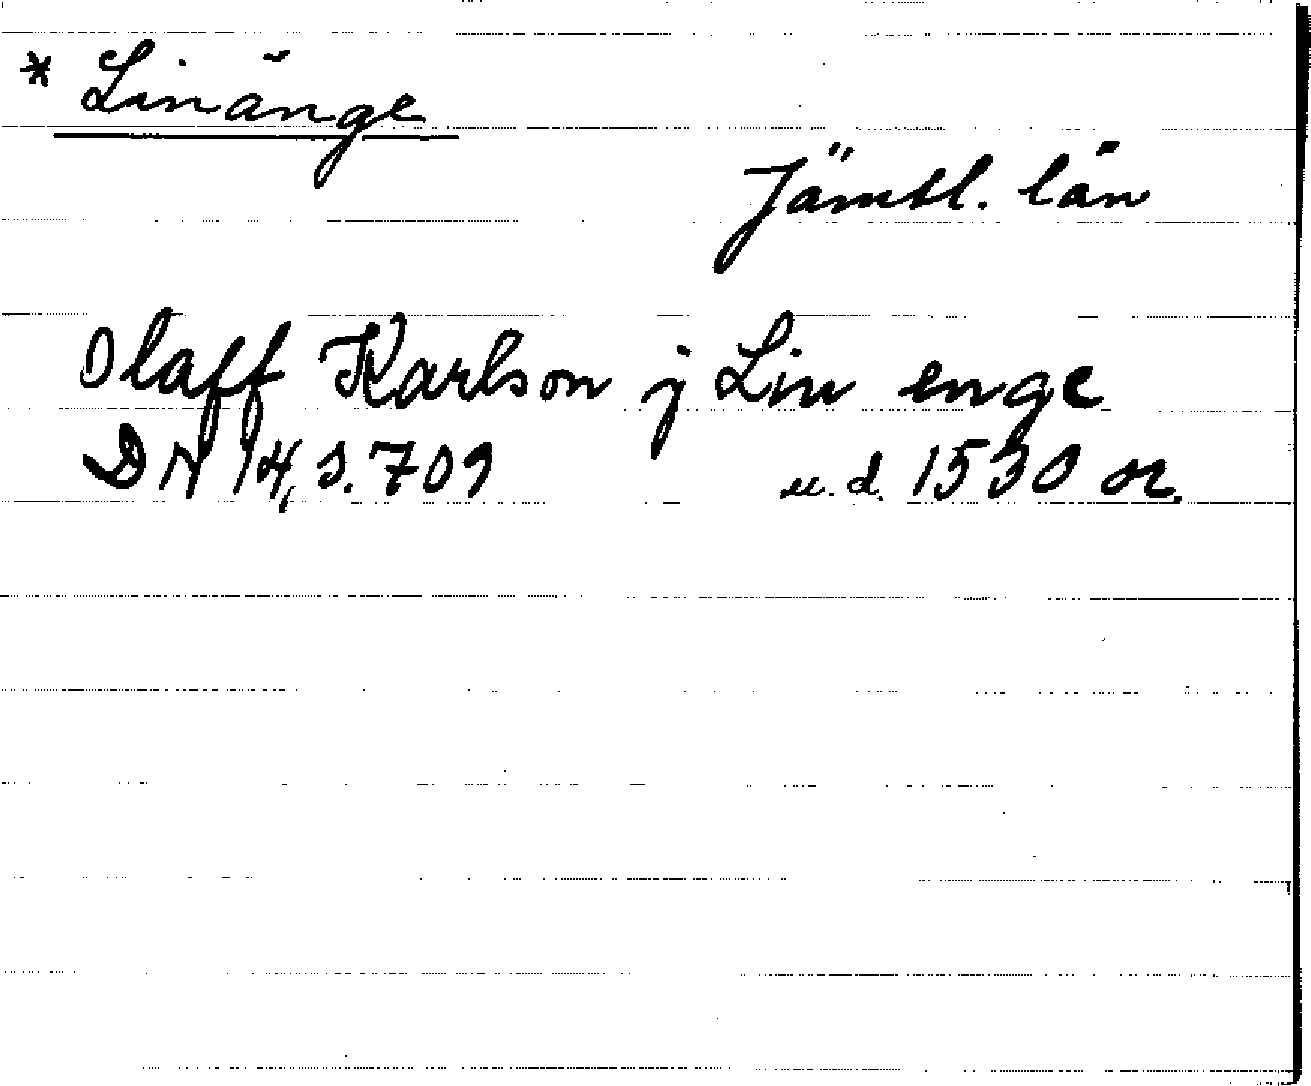 * Linänge
Jämtl. län
Olaff Karlson j Lin enge
DN 14, s. 709 u.d. 1530 or.